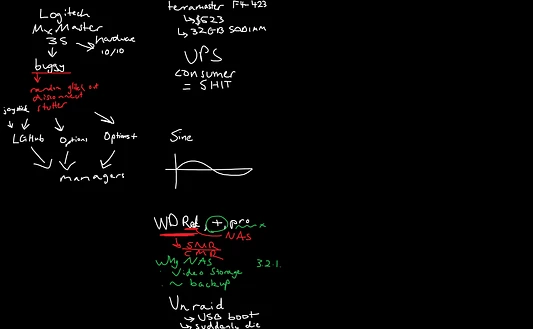 Logitech
Mx Master
3S
hardware
10/10
buggy
random glitch out
disconnect
stutter
joystick
LGHub
Options
Options+
managers
terramaster F4-423
↳$523
↳32GB SODIMM
UPS
consumer
= SHIT
Sine
WD Red, +, pro
NAS
SMR
CMR
Why NAS
3.2.1.
· Video Storage
· ~ backup
Unraid
↳ USB boot
↳ suddenly die